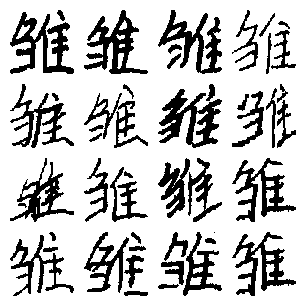 雏雏雏雏
雏雏雏雏
雏雏雏雏
雏雏雏雏